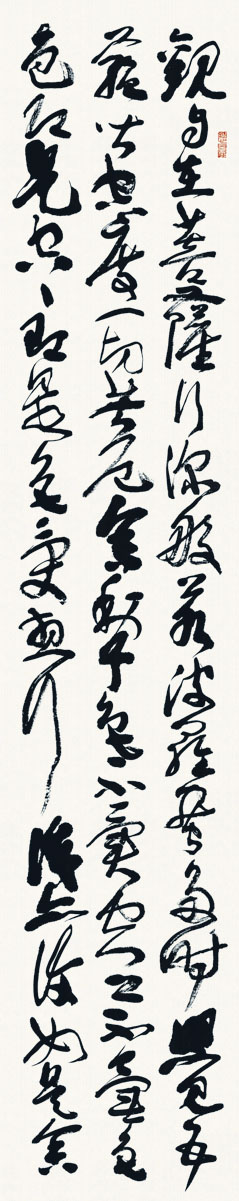 觀自在菩薩行深般若波羅蜜多時照見五
蘊皆空度一切苦厄舍利子色不異空々不異色
色即是空々即是色受想行識亦復如是舍